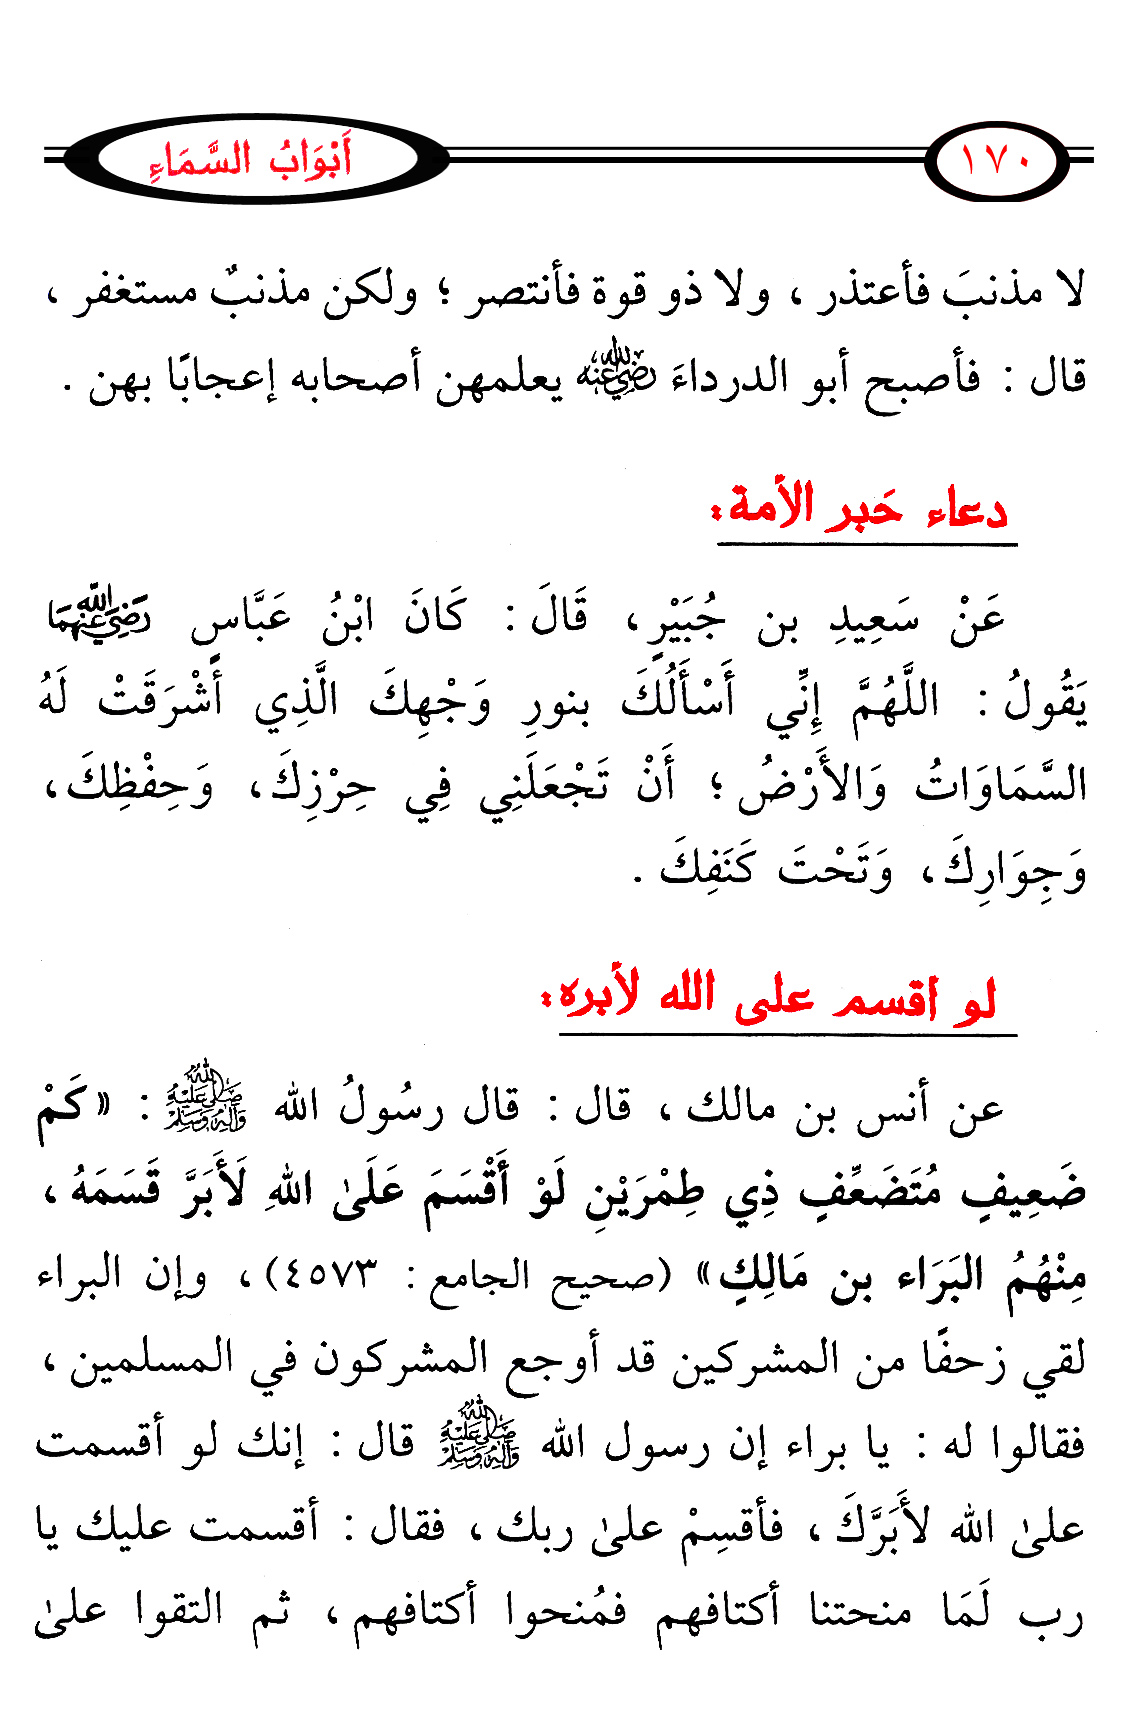 ١٧٠
أَبْوَابُ السَّمَاءِ
لا مذنبَ فأعتذر ، ولا ذو قوة فأنتصر ؛ ولكن مذنبٌ مستغفر ،
قال : فأصبح أبو الدرداءَ رضي الله عنه يعلمهن أصحابه إعجابًا بهن .
دعاء حَبر الأمة:
عَنْ سَعِيدِ بن جُبَيْرٍ، قَالَ : كَانَ ابْنُ عَبَّاسٍ رَضِيَ الله عَنْهُمَا
يَقُولُ : اللَّهُمَّ إِنِّي أَسْأَلُكَ بنورِ وَجْهِكَ الَّذِي أَشْرَقَتْ لَهُ
السَّمَاوَاتُ وَالأَرْضُ ؛ أَنْ تَجْعَلَنِي فِي حِرْزِكَ، وَحِفْظِكَ،
وَجِوَارِكَ، وَتَحْتَ كَنَفِكَ .
لو أقسم على الله لأبره:
عن أنس بن مالك، قال : قال رسُولُ الله صلى الله عليه وآله وسلم : «كَمْ
ضَعِيفٍ مُتَضَعِّفٍ ذِي طِمْرَيْنِ لَوْ أَقْسَمَ عَلَىٰ اللهِ لَأَبَرَّ قَسَمَهُ ،
مِنْهُمُ البَرَاء بن مَالِكٍ» (صحيح الجامع : ٤٥٧٣)، وإن البراء
لقي زحفًا من المشركين قد أوجع المشركون في المسلمين ،
فقالوا له : يا براء إن رسول الله صلى الله عليه وآله وسلم قال : إنك لو أقسمت
علىٰ الله لأَبَرَّكَ ، فأقسِمْ علىٰ ربك ، فقال : أقسمت عليك يا
رب لَمَا منحتنا أكتافهم فمُنحوا أكتافهم ، ثم التقوا علىٰ